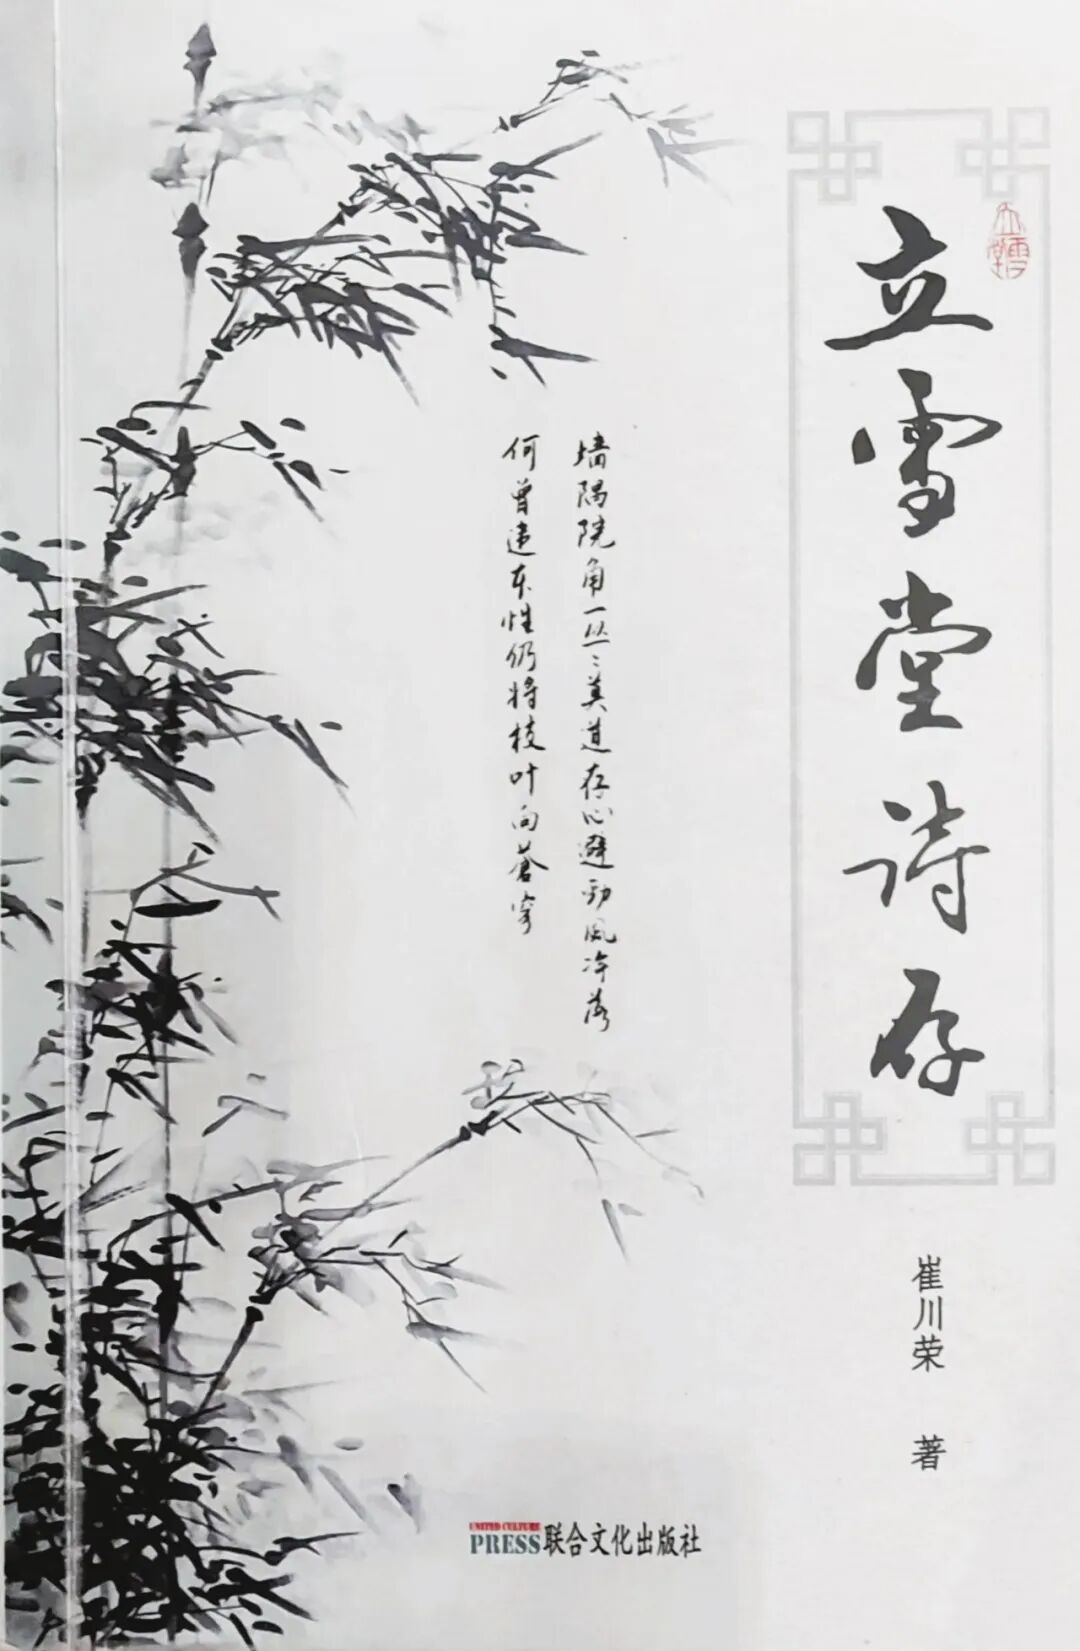 立雪堂诗存
立雪堂
墙隅院角一丛〻莫道存心避劲风冷落
何曾违本性仍将枝叶向蒼穹
崔川荣 著
UNITED CULTURE
PRESS联合文化出版社